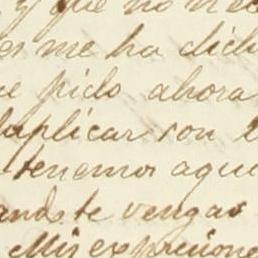 y que no nec
me ha dich
e pido ahora
suplicar con
tenemos aqui
ando te vengas
Mis expresione